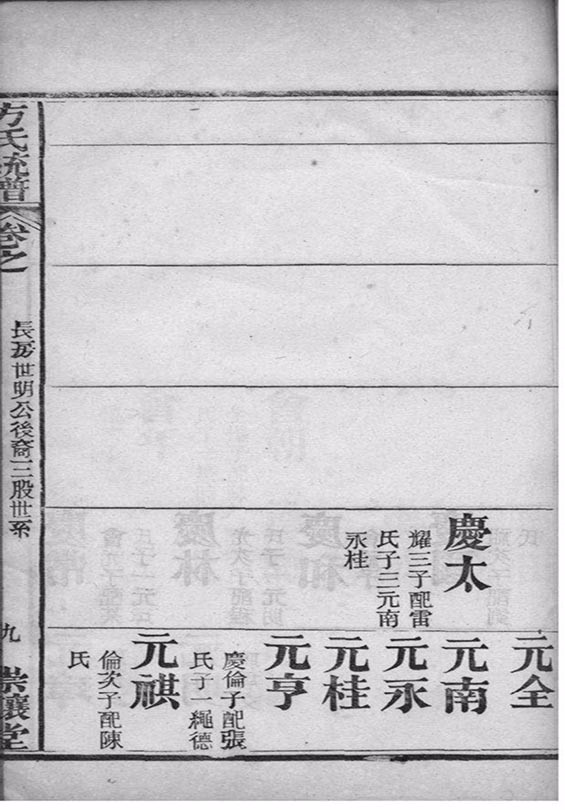 慶太
耀三子配雷
氏子三元南
永桂
元全
元南
元永
元桂
元亨
慶倫子配張
氏子一繩德
元祺
倫次子配陳
氏
方氏統譜
卷之
長房世明公後裔三股世系
九
崇讓堂